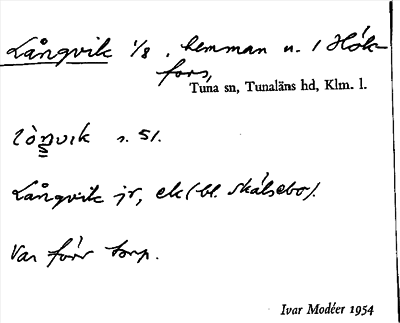 Långvik 1/8, hemman u. / Hök-
fors,
Tuna sn, Tunaläns hd, Klm. l.
s. 51.
Långvik jr, ek (bl. Skälsebo).
Var förr torp.
Ivar Modéer 1954